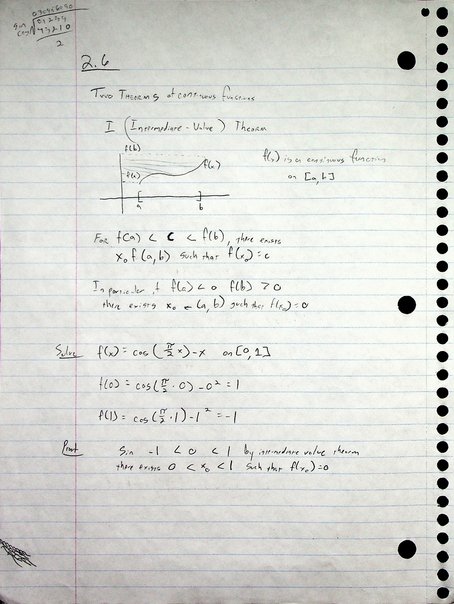 0 30 45 60 90
sin √ 0 1 2 3 4
cos √ 4 3 2 1 0
2
2.6
Two Theorems of continuous functions
I (Intermediate-Value) Theorem
f(b)
f(x)
f(a)
a b
f(x) is a continuous function
on [a,b]
For f(a) < c < f(b), there exists
x₀ f (a,b) such that f(x₀) = c
In particular if f(a) < 0 f(b) > 0
there exists x₀ ∈ (a,b) such that f(x₀) = 0
Solve f(x) = cos(π/2 x) - x on [0,1]
f(0) = cos(π/2 · 0) - 0² = 1
f(1) = cos(π/2 · 1) - 1² = -1
Proof Sin -1 < 0 < 1 by intermediate value theorem
there exists 0 < x₀ < 1 such that f(x₀) = 0